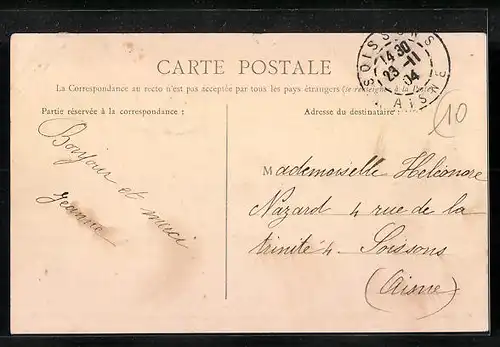 CARTE POSTALE
La Correspondance au recto n'est pas acceptée par tous les pays étrangers (se renseigner à la Poste)
Partie réservée à la correspondance :
Adresse du destinataire :
SOISSONS
14 30
23 - 11
04
AISNE
10
Bonjour et merci
Jeanne
Mademoiselle Heléonore
Nazard 4 rue de la
trinité 4. Soissons
(Aisne)